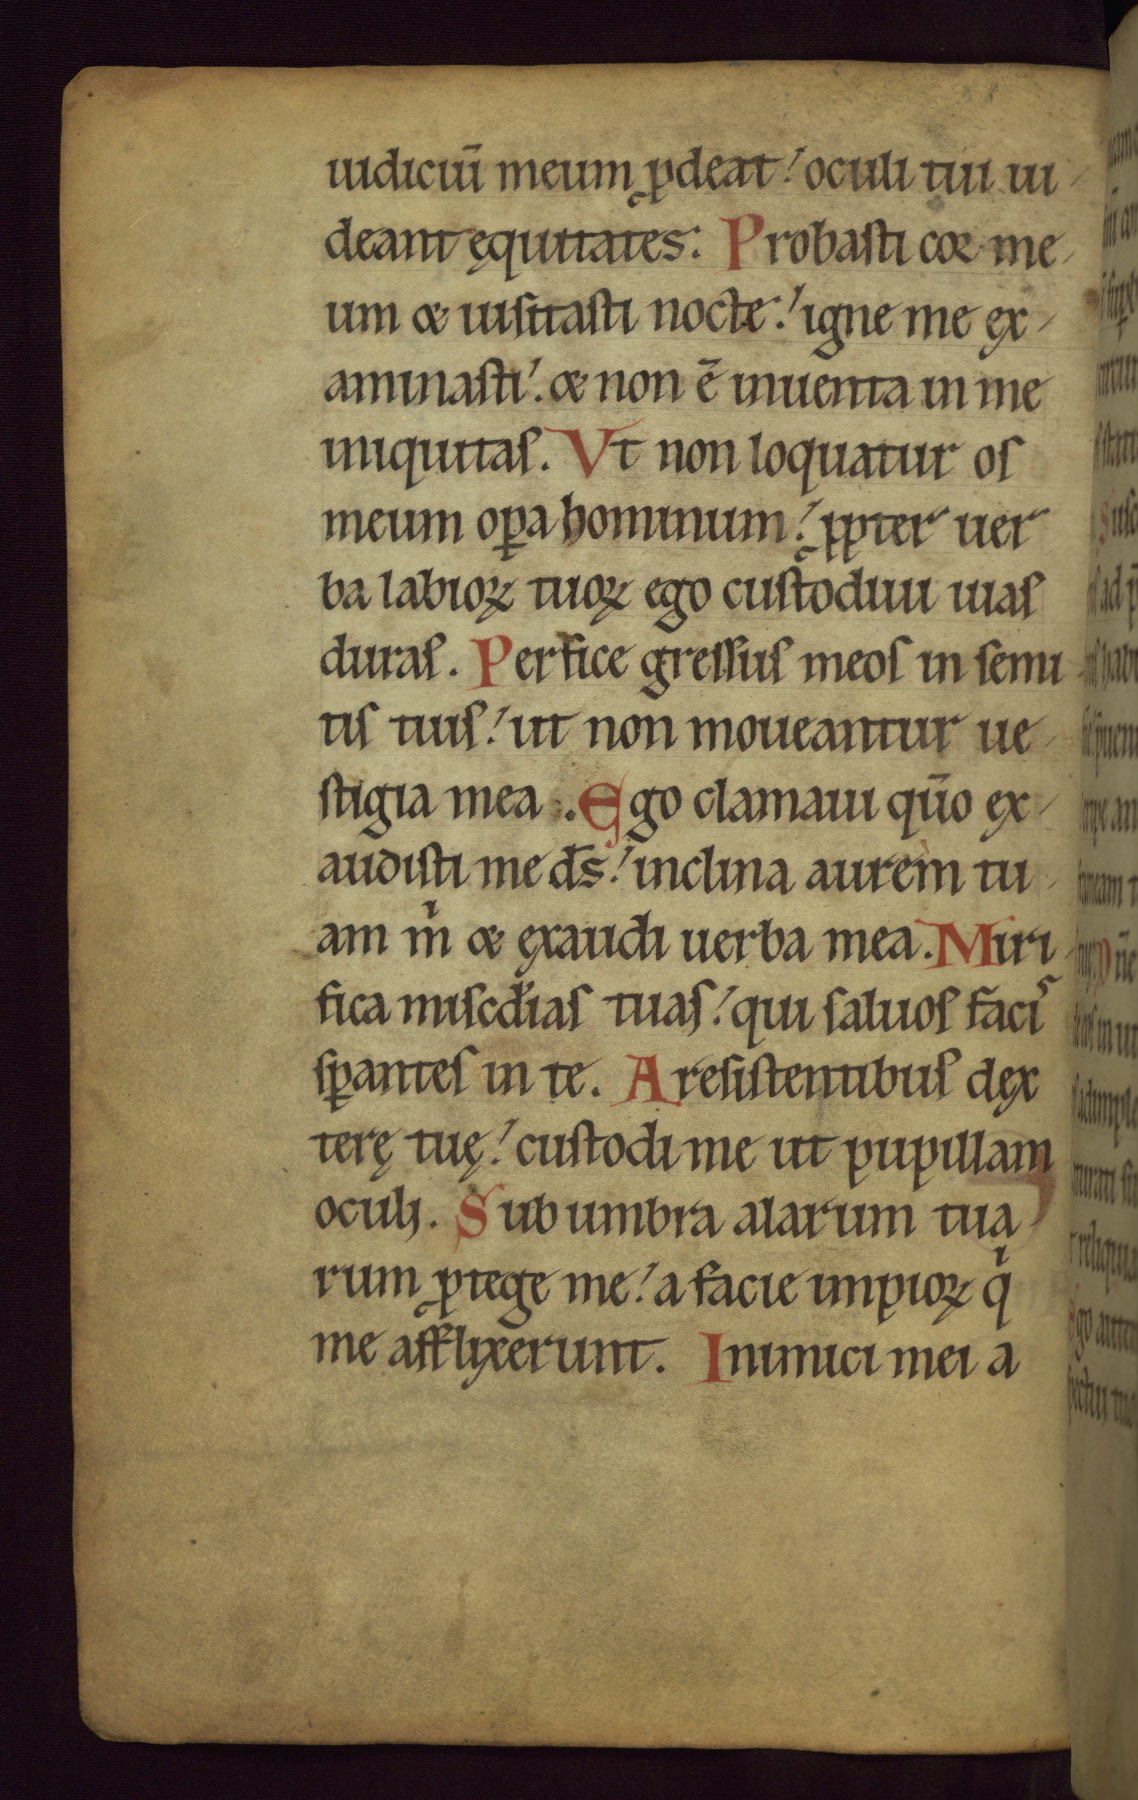 iudiciū meum ꝓdeat! oculi tui ui-
deant ęquitates: Probasti cor me-
um & uisitasti nocte! igne me ex-
aminasti! & non ē inuenta in me
iniquitas. Vt non loquatur os
meum oꝑa hominum! ꝓpter uer
ba labioꝝ tuoꝝ ego custodiui uias
duras. Perfice gressus meos in semi
tis tuis! ut non moueantur ue-
stigia mea. Ego clamaui qūo ex-
audisti me ds̄! inclina aurem tu-
am m̍ & exaudi uerba mea. Miri
fica miscdias tuas! qui saluos facis
sꝑantes in te. A resistentibus dex
terę tuę! custodi me ut pupillam
oculi. Sub umbra alarum tua
rum ꝓtege me! a facie impioꝝ q̍
me afflixerunt. Inimici mei a